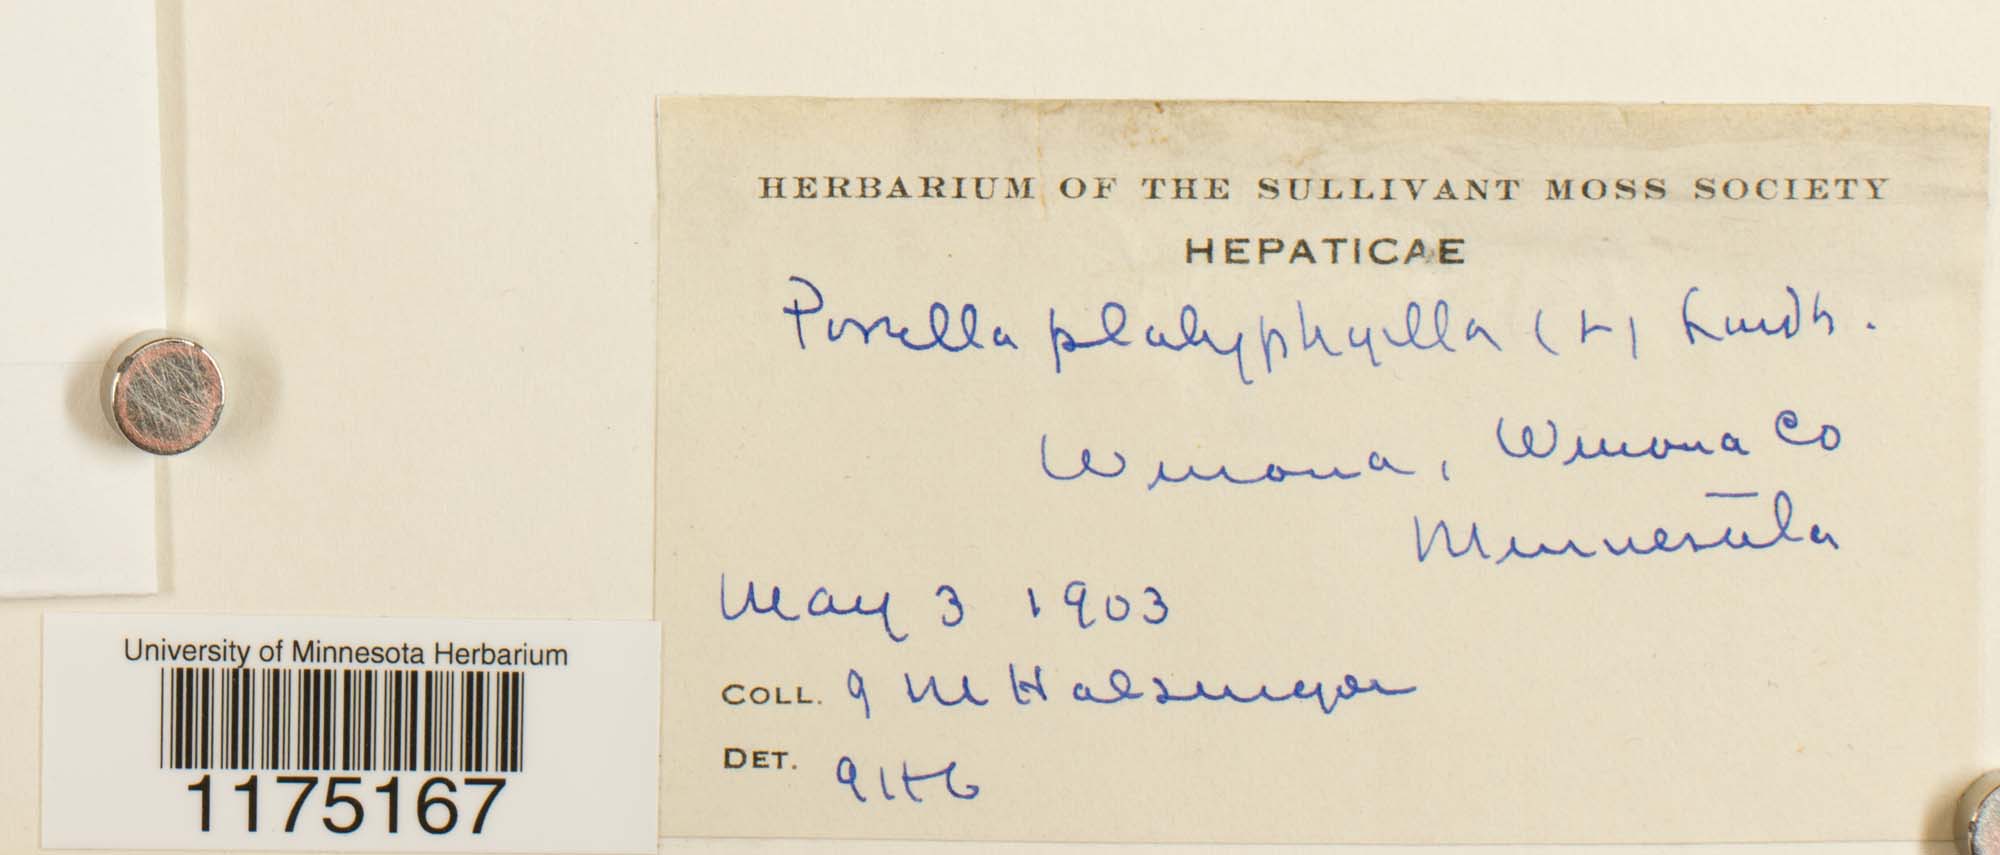 HERBARIUM OF THE SULLIVANT MOSS SOCIETY
HEPATICAE
Porella platyphylla (L) Lindb.
Winona, Winona Co
Minnesota
May 3 1903
COLL. J M Holzinger
DET.
University of Minnesota Herbarium
1175167